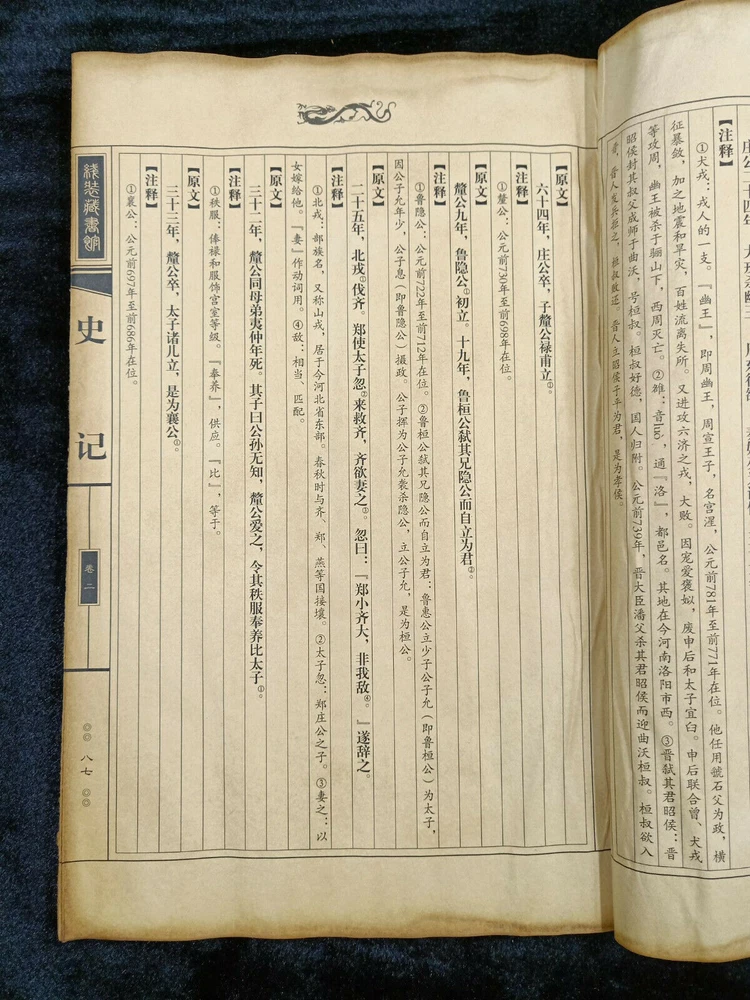 庄公二十四年，犬戎杀幽王，周东徙雒。秦始
【注释】
①犬戎：戎人的一支。『幽王』，即周幽王，周宣王子，名宫湦，公元前781年至前771年在位。他任用虢石父为政，横
征暴敛，加之地震和旱灾，百姓流离失所。又进攻六济之戎，大败。因宠爱褒姒，废申后和太子宜臼。申后联合曾、犬戎
等攻周，幽王被杀于骊山下，西周灭亡。②雒：音luò，通『洛』，都邑名。其地在今河南洛阳市西。③晋弑其君昭侯：晋
昭侯封其叔父成师于曲沃，号桓叔。桓叔好德，国人归附。公元前739年，晋大臣潘父杀其君昭侯而迎曲沃桓叔。桓叔欲入
晋，晋人发兵拒之，桓叔败还。晋人立昭侯子平为君，是为孝侯。
【原文】
六十四年，庄公卒，子釐公禄甫立①。
【注释】
①釐公：公元前730年至前698年在位。
【原文】
釐公九年，鲁隐公①初立。十九年，鲁桓公弑其兄隐公而自立为君②。
【注释】
①鲁隐公：公元前722年至前712年在位。②鲁桓公弑其兄隐公而自立为君：鲁惠公立少子公子允（即鲁桓公）为太子，
因公子允年少，公子息（即鲁隐公）摄政。公子挥为公子允袭杀隐公，立公子允，是为桓公。
【原文】
二十五年，北戎①伐齐。郑使太子忽②来救齐，齐欲妻之③。忽曰：『郑小齐大，非我敌④。』遂辞之。
【注释】
①北戎：部族名，又称山戎，居于今河北省东部。春秋时与齐、郑、燕等国接壤。②太子忽：郑庄公之子。③妻之：以
女嫁给他。『妻』作动词用。④敌：相当、匹配。
【原文】
三十二年，釐公同母弟夷仲年死。其子曰公孙无知，釐公爱之，令其秩服奉养比太子①。
【注释】
①秩服：俸禄和服饰宫室等级。『奉养』，供应。『比』，等于。
【原文】
三十三年，釐公卒，太子诸儿立，是为襄公①。
【注释】
①襄公：公元前697年至前686年在位。
线装藏书馆
史记
卷二
八七